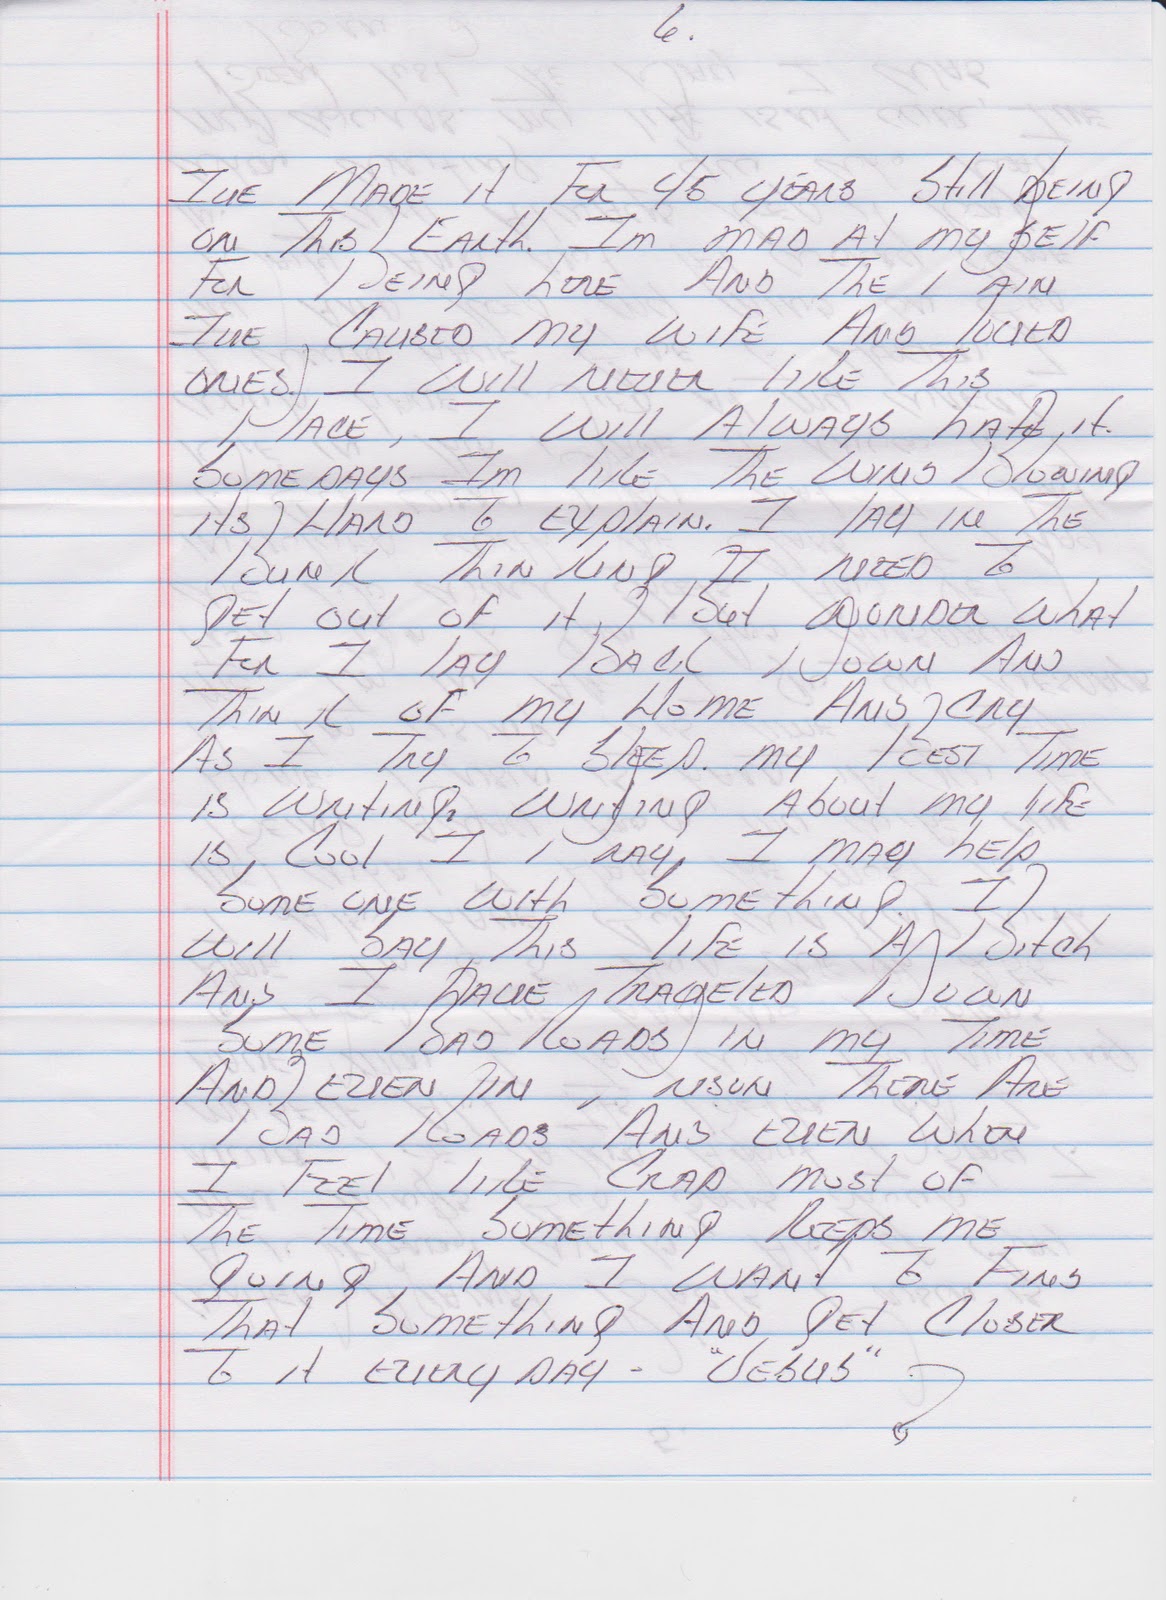 6.
Ive Made it For 45 years Still being
on This Earth. Im mad At my self
For being here And The Pain
Ive Caused my wife And loved
ones. I will never like This
Place, I will Always hate it.
Somedays Im like The wind blowing
its Hard To explain. I lay in The
bunk Thinking, I need To
get out of it, but wonder what
For I lay back Down And
Think of my Home And cry
As I Try To Sleep. my best Time
is writing, writing About my life
is, Cool I Pray, I may help
Some one with Something. I
will Say This life is A Bitch
And I Have Traveled Down
Some bad Roads in my Time
And even in Prison There Are
Bad Roads And even when
I Feel like Crap most of
The Time Something Keeps me
going, And I want To Find
That Something And get Closer
To it every day - "Jesus"